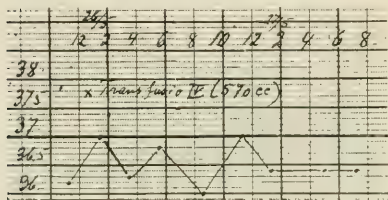 26/5 27/5
12 2 4 6 8 10 12 2 4 6 8
38
37.5 x Transfusio IV (570 cc)
37
36.5
96.